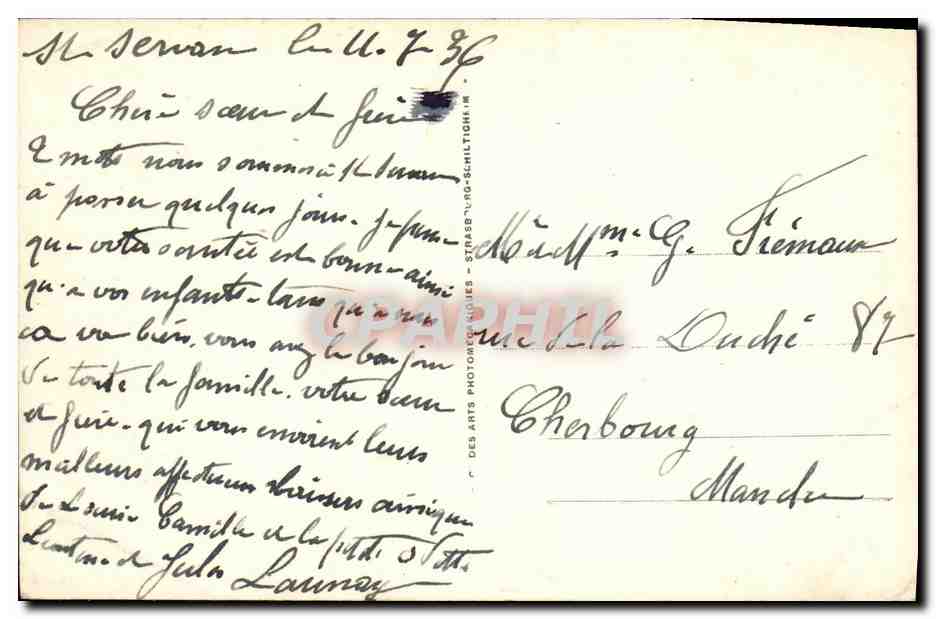 St Servan le 11-7-36
Chère sœur et frère
2 mots nous sommes à St Servan
à passer quelques jours. je pense
que votre santée est bonne ainsi
qu'a vos enfants. tans qu'a nous
ca va bien. vous avez le bonjour
de toute la famille. votre sœur
et frère. qui vous envoient leurs
meilleurs affectueux baisers ainsi que
de Camille et la petite
et Jules Launay
C DES ARTS PHOTOMÉCANIQUES - STRASBOURG-SCHILTIGHEIM -
Mr et Mme G. Frémaux
rue de la Duché 87
Cherbourg
Manche
CPAPHIL